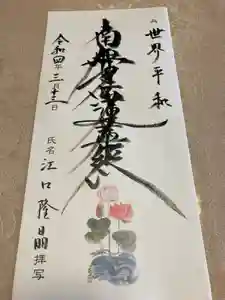 世界平和
南無妙法蓮華経
令和四年三月十三日
氏名 江口隆昌 拝写